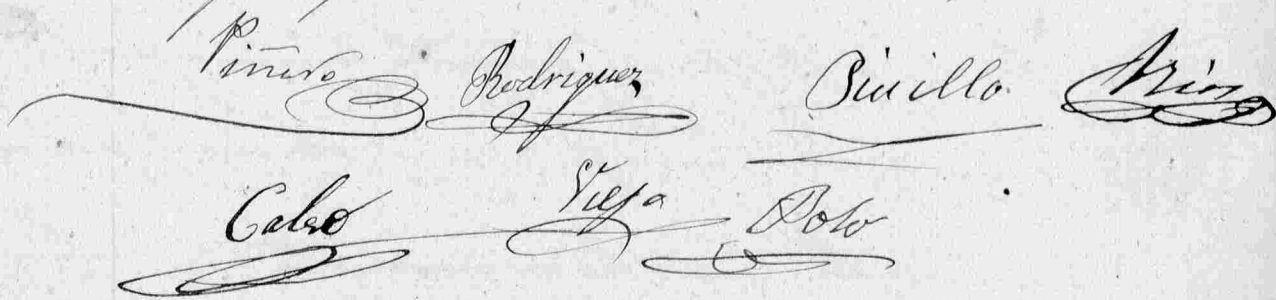 Piñero Rodriguez Pinilla Rios
Calvo Vieja Polo